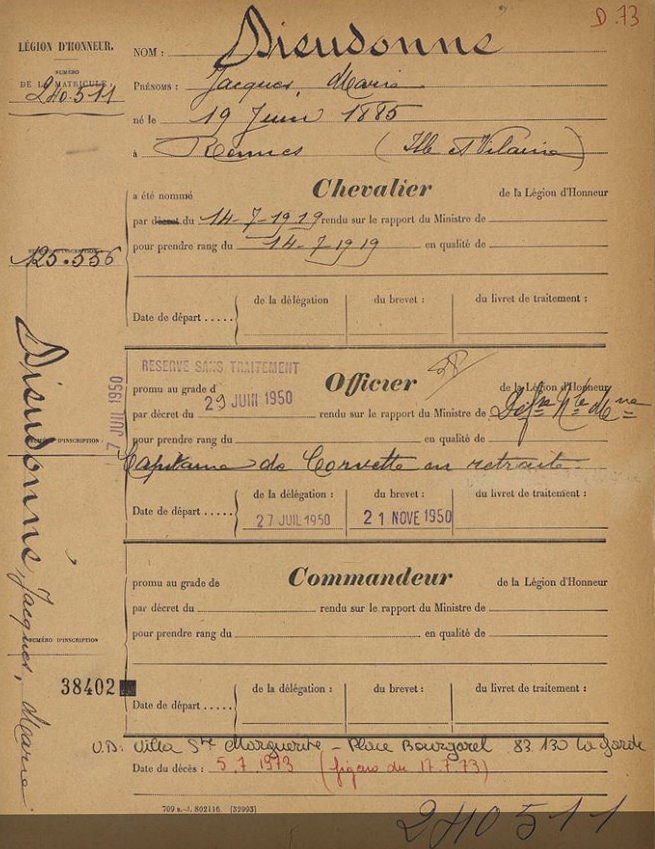 D.73
LÉGION D'HONNEUR.
NUMÉRO
DE LA MATRICULE.
240.511
NOM : Dieudonné
PRÉNOMS : Jacques, Marie
né le 19 Juin 1885
à Rennes (Ille et Vilaine)
a été nommé Chevalier de la Légion d'Honneur
par décret du 14-7-1919 rendu sur le rapport du Ministre de
pour prendre rang du 14-7-1919 en qualité de
125.556
de la délégation du brevet : du livret de traitement :
Date de départ .....
RESERVE SANS TRAITEMENT
promu au grade d Officier de la Légion d'Honneur
par décret du 29 JUIN 1950 rendu sur le rapport du Ministre de Déf Nle
7 JUIL 1950
pour prendre rang du en qualité de
Capitaine de Corvette en retraite.
D'INSCRIPTION
de la délégation : du brevet : du livret de traitement :
Date de départ ..... 27 JUIL 1950 21 NOVE 1950
Dieudonné, Jacques, Marie
promu au grade de Commandeur de la Légion d'Honneur
par décret du rendu sur le rapport du Ministre de
pour prendre rang du en qualité de
NUMÉRO D'INSCRIPTION
38402
de la délégation : du brevet : du livret de traitement :
Date de départ .....
V.D: Villa Ste Marguerite - Place Bourgarel 83.130 La Garde
Date du décès : 5.7.1973 (figaro du 17.7.73)
709 s.-l. 802116. [32993]
240511